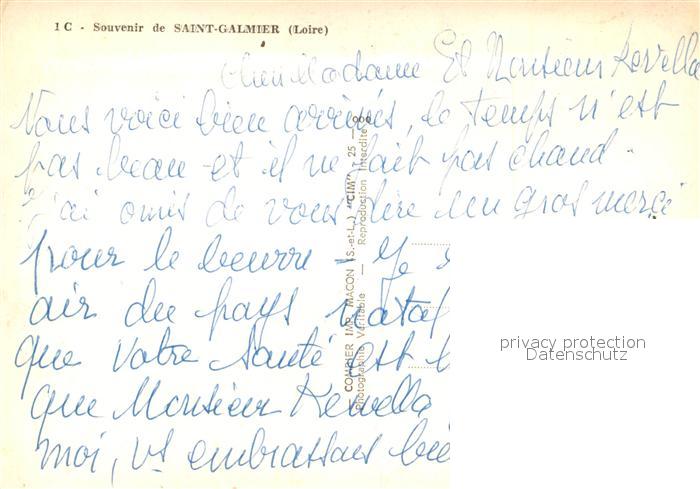 1 C - Souvenir de SAINT-GALMIER (Loire)
Chere Madame Et Monsieur Kervella
Nous voici bien arrivés, le temps n'est
pas beau et il ne fait pas chaud.
J'ai omis de vous dire un gros merci
pour le beurre - Je
air du pays natal
que votre santé est b
que Monsieur Kervella
moi, vs embrassons bie
COMBIER IMP. MACON (S.-et-L.) "CIM" 25
Photographie Véritable — Reproduction Interdite
privacy protection
Datenschutz